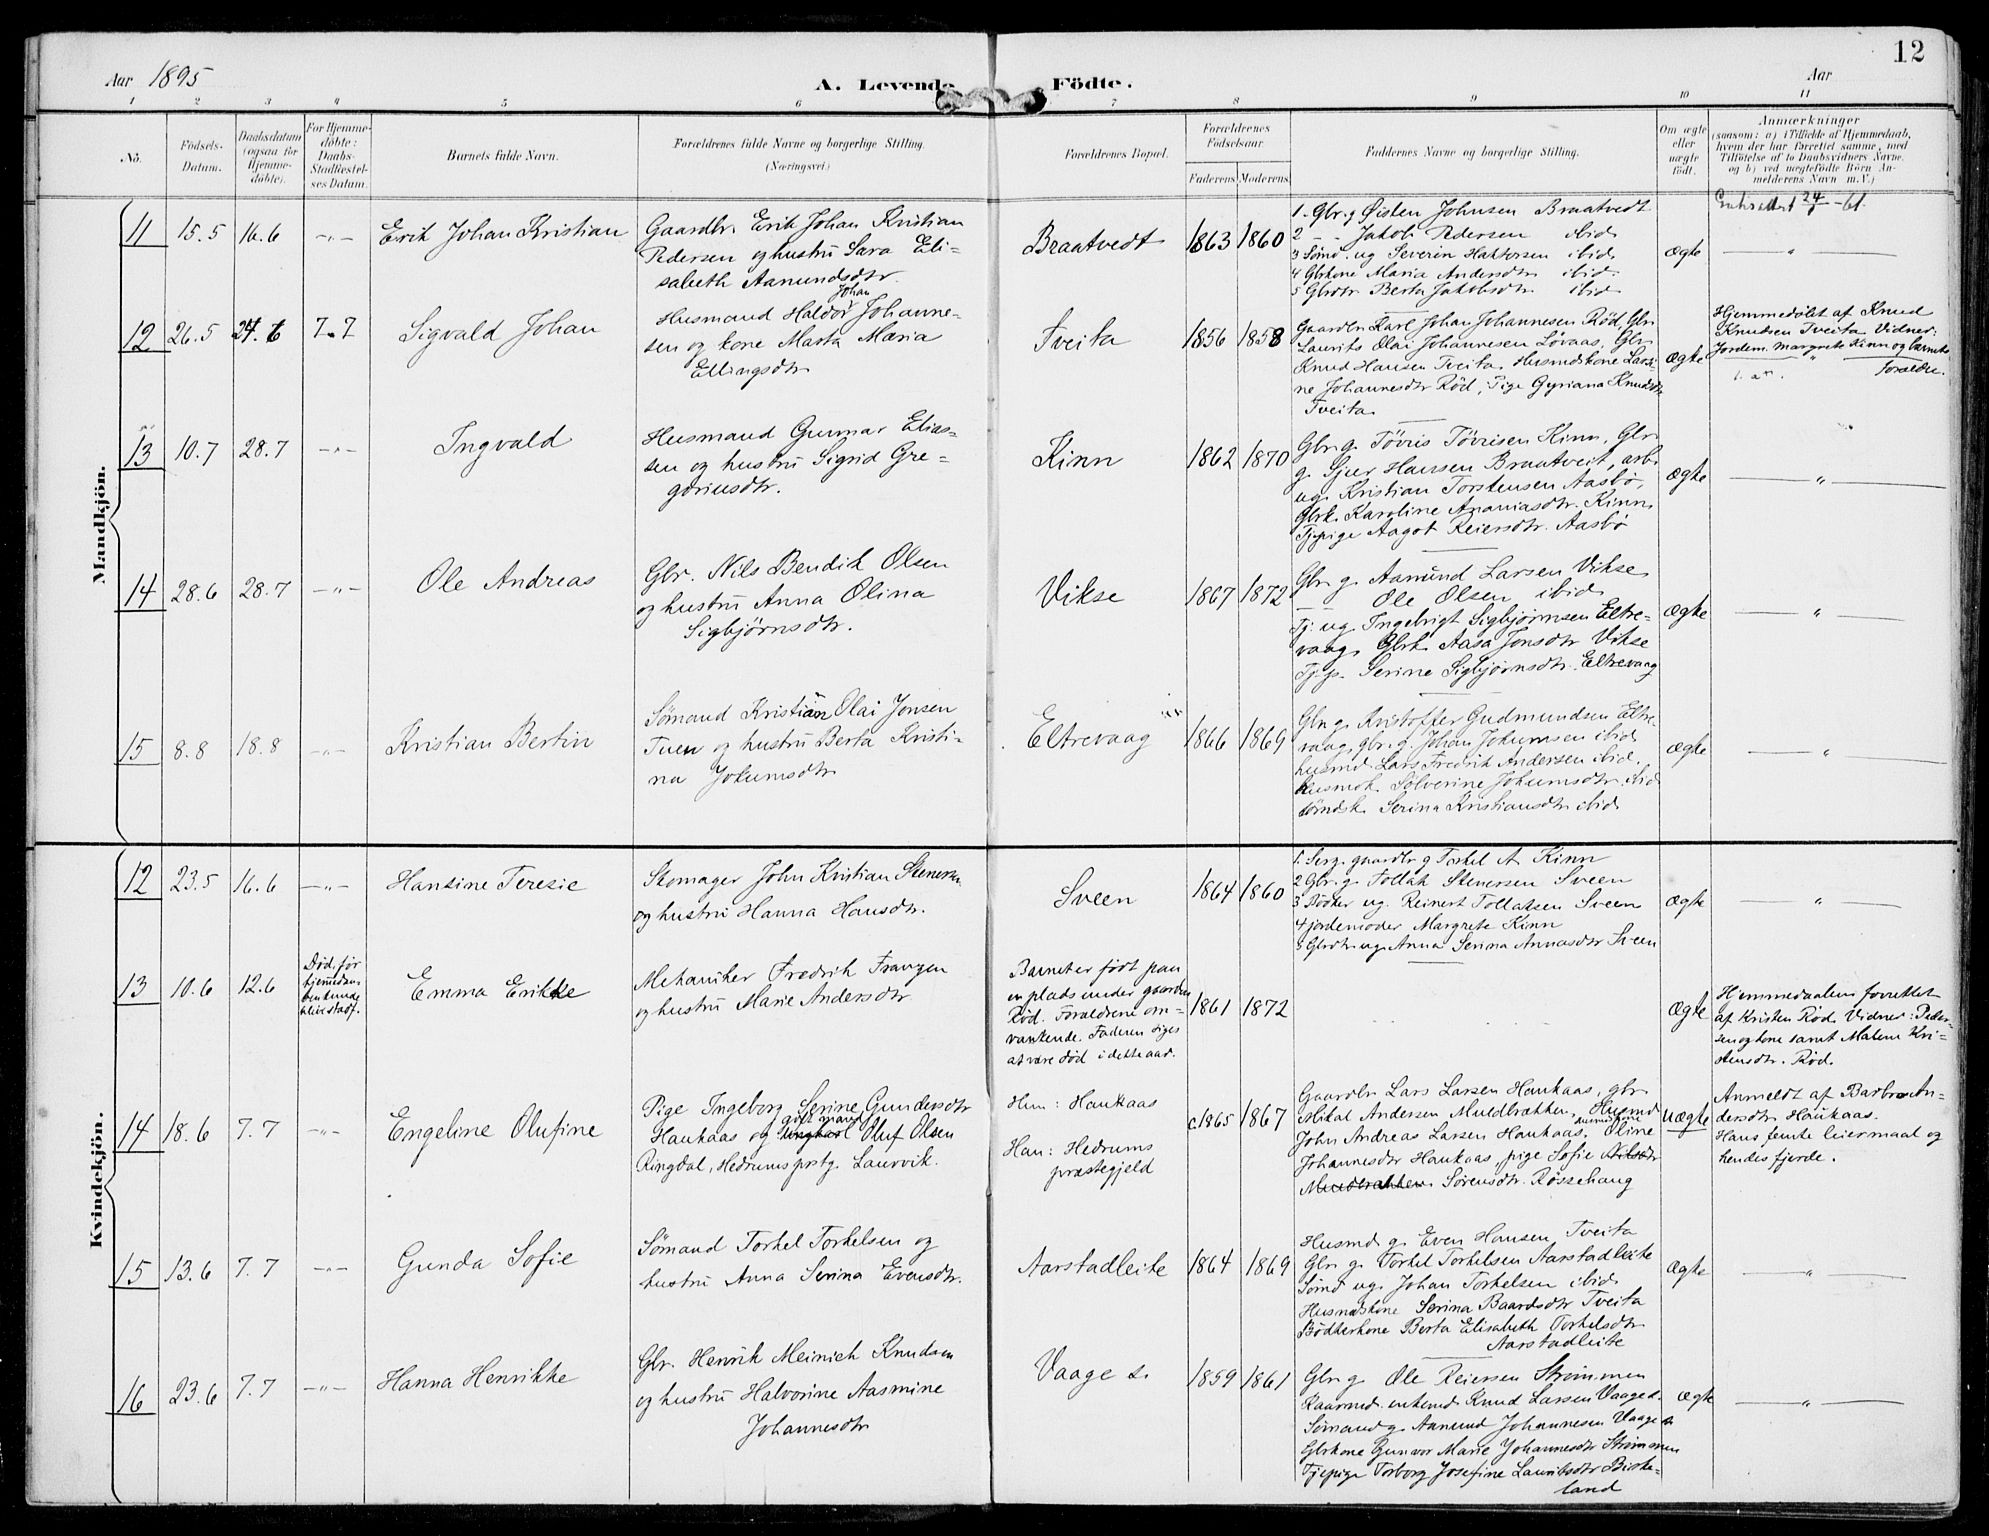 12
Aar 1895
A. Levende Födte.
Aar
1 2 3 4 5 6 7 8 9 10 11
Nô.
Födsels-
Datum.
Daabsdatum
(ogsaa for
Hjemme-
döbte).
For Hjemme-
döbte:
Daabs-
Stadfæstel-
ses Datum.
Barnets fulde Navn.
Forældrenes fulde Navne og borgerlige Stilling.
(Næringsvei.)
Forældrenes Bopæl.
Forældrenes
Födselsaar.
Faderens. Moderens.
Faddernes Navne og borgerlige Stilling.
Om ægte
eller
uægte
født.
Anmærkninger
(saasom: a) i Tilfælde af Hjemmedaab,
hvem der har forrettet samme, med
Tilföielse af to Daabsvidners Navne,
og b) ved uægtefödte Börn An-
melderens Navn m. V.)
Mandkjön.
11
15.5
16.6
-"-
Erik Johan Kristian
Gaardbr. Erik Johan Kristian
Pedersen og hustru Sara Eli-
sabeth Aamundsdtr.
Braatvedt
1863
1860
1. Gbr. g. Øisten Johnsen Braatvedt
2 - - Jakob Pedersen ibid
3 Sømd. ug Severin Haktorsen ibid
4 Gbrkone Maria Andersdtr ibid.
5 Gbrdtr Berta Jakobsdtr ibid
ægte
"
12
26.5
24.6
7.7
Sigvald Johan
Johan
Husmand Haldor Johanne-
sen og kone Marta Maria
Ellingsdtr
Tveita
1856
1858
Gaardbr Karl Johan Johannesen Rød, Gbr
Laurits Olai Johannesen Løvaas, Gbr
Knud Hansen Tveita, Husmdskone Larsi-
ne Johannesdtr Rød, Pige Gyriana Knudsdtr
Tveita
ægte
Hjemmedøbt af Knud
Knudsen Tveita Vidner:
Jordem. Margrete Kinn og barnets
forældre.
13
10.7
28.7
-"-
Ingvald
Husmand Gunnar Elias-
sen og hustru Sigrid Gre-
goriusdtr.
Kinn
1862
1870
Gbr g. Tøvris Tøvrisen Kinn, Gbr
g. Sjur Hansen Braatveit, arb.
ug. Kristian Torstensen Aasbø,
Gbrk. Karoline Ananiasdtr. Kinn,
Tjpige Aagot Reiersdtr. Aasbø
ægte
"
14
28.6
28.7
-"-
Ole Andreas
Gbr. Nils Bendik Olsen
og hustru Anna Olina
Sigbjørnsdtr.
Vikse
1867
1872
Gbr g. Aamund Larsen Vikse
Ole Olsen ibid
Tj. ug Ingebrigt Sigbjørnsen Eltre-
vaag, Gbrk Aasa Jonsdtr Vikse
Tj.p. Serine Sigbjørnsdtr. Eltrevaag
ægte
"
15
8.8
18.8
-"-
Kristian Bertin
Sømand Kristian Olai Jonsen
Tuen og hustru Berta Kristi-
na Jokumsdtr
Eltrevaag
1866
1869
Gbr g. Kristoffer Gudmundsen Eltre-
vaag, Gbr. g. Johan Jokumsen ibid
husmd. Lars Fredrik Andersen ibid,
husmdk Sølverine Jokumsdtr ibid
sømdsk. Serina Kristiansdtr ibid
ægte
"
Kvindekjön.
12
23.5
16.6
-"-
Hansine Teresie
Skomager John Kristian Stenersen
og hustru Hanna Hansdtr.
Sveen
1864
1860
1. Serg. gaardbr g Torkel A Kinn
2 Gbr. g. Tollak Stenersen Sveen
3 Bødker ug. Reinert Tollaksen Sveen
4 jordemoder Margrete Kinn
5 Gbrdtr ug. Anna Serina Annasdtr Sveen
ægte
"
13
10.6
12.6
Død før
hjemedaa-
ben kunde
blive stadf.
Emma Erikke
Mekaniker Fredrik Franzen
og hustru Marie Andersdtr
Barnet er født paa
en plads under gaarden
Rød. Forældrene om-
vankende. Faderen siges
at være død i dette aar.
1861
1872
ægte
Hjemmedaaben forrettet
af Kristen Rød. Vidner: Peder-
sen og kone samt Malene Kri-
stensdtr. Rød.
14
18.6
7.7
-"-
Engeline Olufine
Pige Ingeborg Serine Gundersdtr
gift mand
Haukaas og ungkarl Oluf Olsen
Ringdal, Hedrums prstg. Laurvik.
Hun: Haukaas
Han: Hedrums
præstegjeld
c.1865
1867
Gaardbr Lars Larsen Haukaas, gbr
Mikal Andersen Muldbrækken, Husmd
John Andreas Larsen Haukaas, Oline
Johannesdtr Haukaas, pige Sofie Nilsdtr
Muldbrækken Sørensdtr. Røssehaug
uægte
Anmeldt af Barbro An-
dersdtr Haukaas.
Hans femte leiermaal og
hendes fjerde.
15
13.6
7.7
-"-
Gunda Sofie
Sømand Torkel Torkelsen og
hustru Anna Serina Evensdtr.
Aarstadleite
1864
1869
Husmd g. Even Hansen Tveita
Gbr g. Torkel Torkelsen Aarstadleite
Sømd ug. Johan Torkelsen ibid,
Husmdskone Serina Baardsdtr Tveita
Bødkerkone Berta Elisabeth Torkelsdtr
Aarstadleite
ægte
"
16
23.6
7.7
-"-
Hanna Henrikke
Gbr. Henrik Meinich Knudsen
og hustru Halvorine Aasmine
Johannesdtr
Vaage s.
1859
1861
Gbr g. Ole Reiersen Strømmen
Kaarmd. enkemd Knud Larsen Vaage s.
Sømand g. Aamund Johannesen Vaage s
Gbrkone Gunvor Marie Johannesdtr Strømmen
Tjepige Torborg Josefine Lauritsdtr Birke-
land
ægte
"